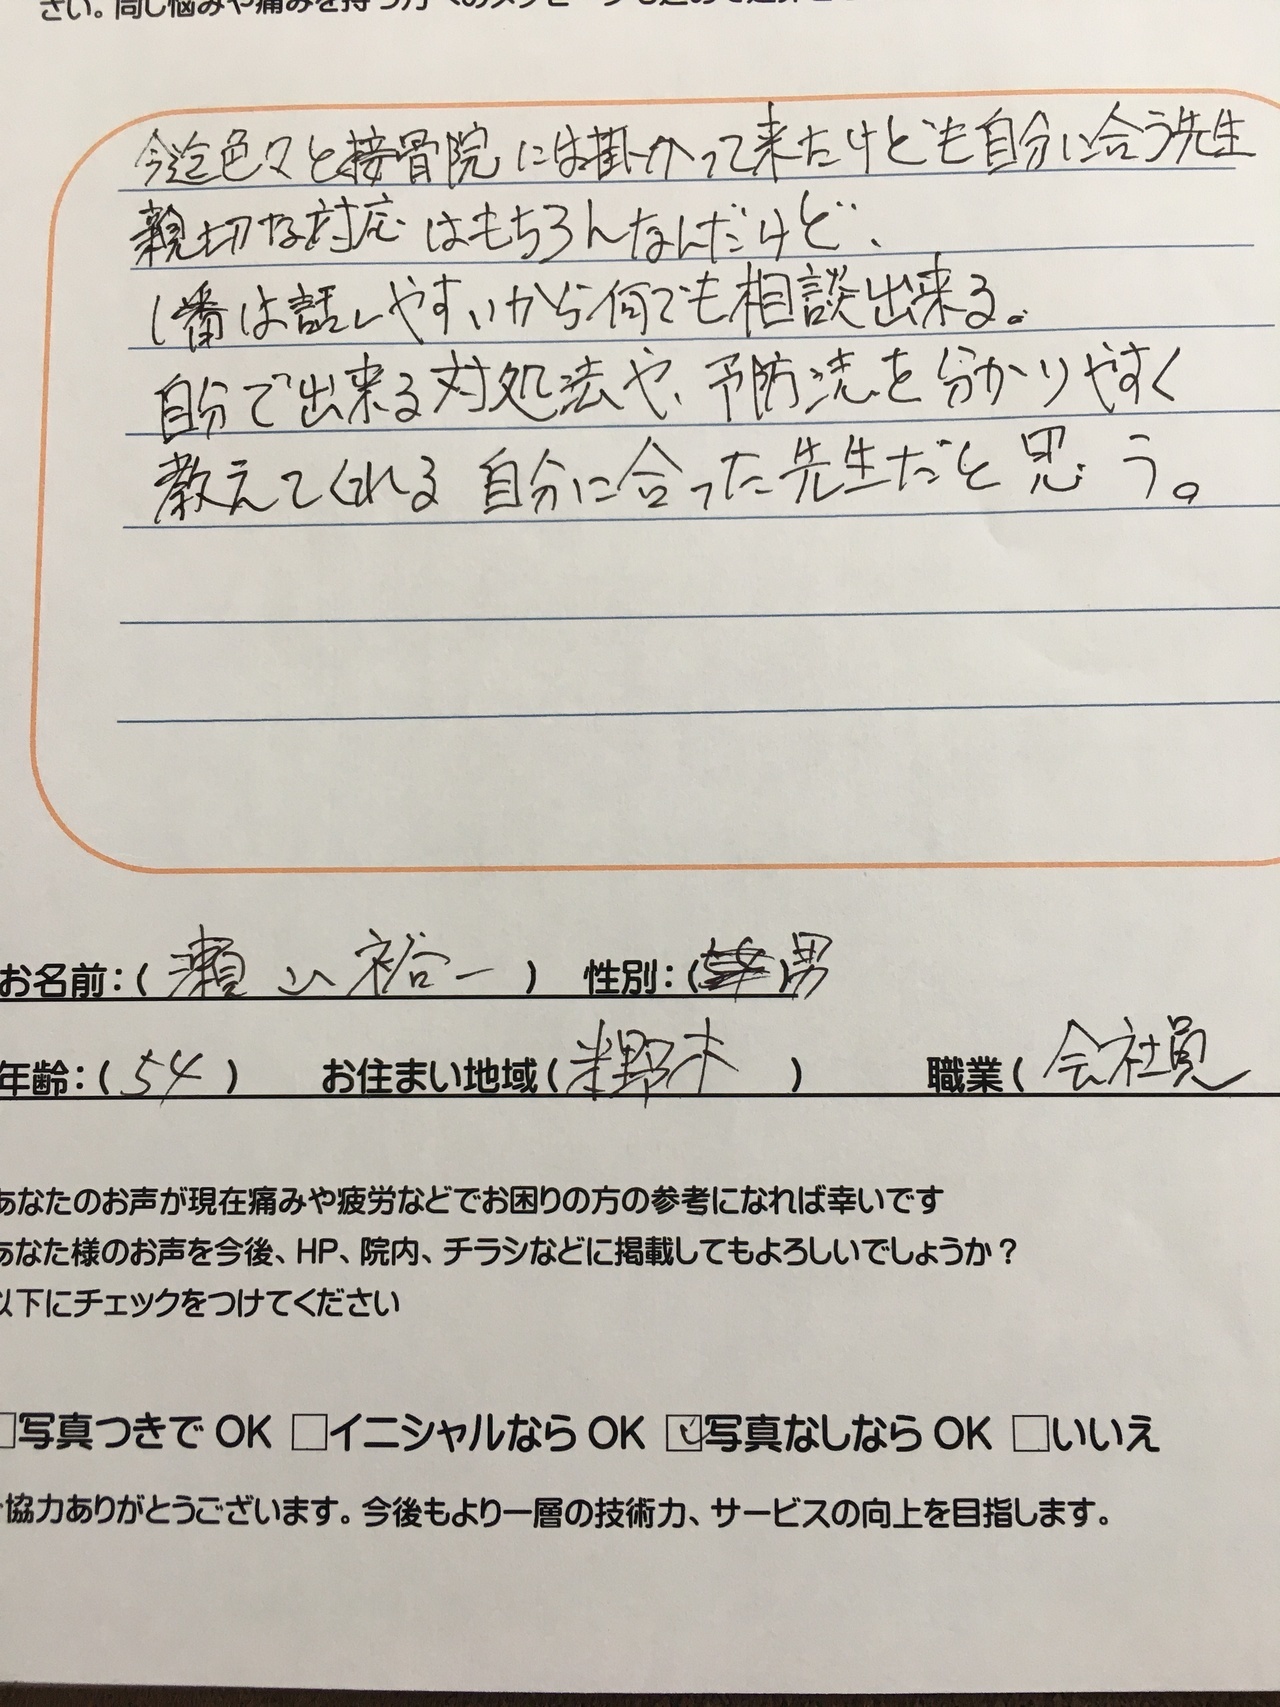 さい。同じ悩みや痛みを持つ方へのメッセージも
今迄色々と接骨院には掛かって来たけども自分に合う先生
親切な対応はもちろんなんだけど、
1番は話しやすいから何でも相談出来る。
自分で出来る対処法や、予防法を分かりやすく
教えてくれる 自分に合った先生だと思う。
お名前:(瀬山 裕一) 性別:( )男
年齢:(54) お住まい地域(米野木) 職業(会社員
あなたのお声が現在痛みや疲労などでお困りの方の参考になれば幸いです
あなた様のお声を今後、HP、院内、チラシなどに掲載してもよろしいでしょうか?
以下にチェックをつけてください
□写真つきで OK □イニシャルなら OK ☑写真なしなら OK □いいえ
協力ありがとうございます。今後もより一層の技術力、サービスの向上を目指します。